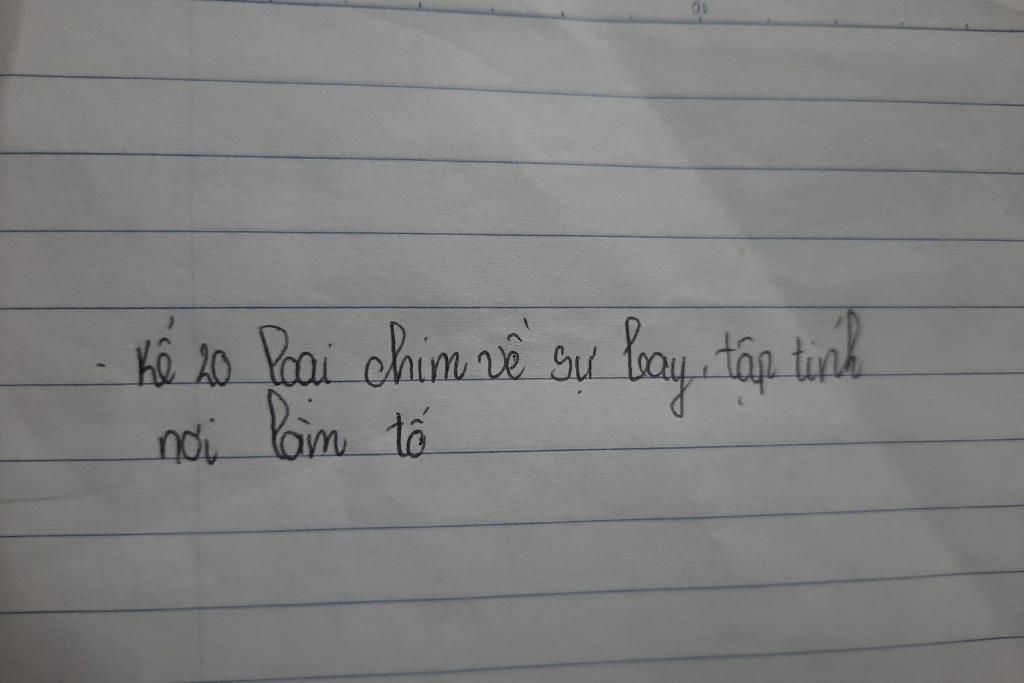 - Kể 20 loài chim về sự bay, tập tính
nơi làm tổ